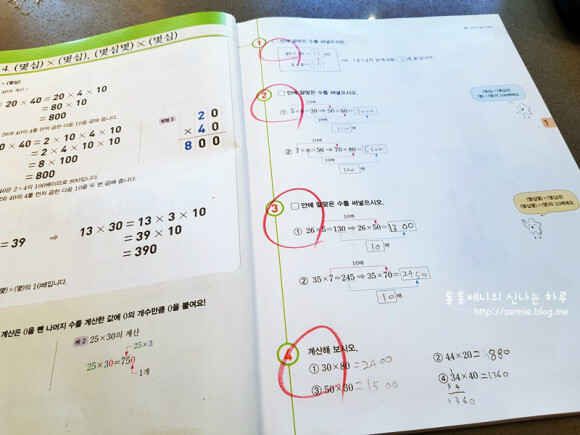 4. (몇십)×(몇십), (몇십몇)×(몇십)
20 × 40 = 20 × 4 × 10
= 80 × 10
= 800
× 40 = 2 × 10 × 4 × 10
= 2 × 4 × 10 × 10
= 8 × 100
= 800
방법 2
2 0
× 4 0
8 0 0
40은 2×4의 100배이므로 800입니다.
= 39
13 × 30 = 13 × 3 × 10
= 39 × 10
= 390
×(몇)의 10배입니다.
계산은 0을 뺀 나머지 수를 계산한 값에 0의 개수만큼 0을 붙여요!
예 2 25×30의 계산
25×3
25×30=750
1개
1 □ 안에 알맞은 수를 써넣으시오.
2 □ 안에 알맞은 수를 써넣으시오.
10배
① 5×6=30 ⇒ 50×60=3000
100배
10배
② 7×8=56 ⇒ 70×80=5600
100배
3 □ 안에 알맞은 수를 써넣으시오.
10배
① 26×5=130 ⇒ 26×50=1300
10배
10배
② 35×7=245 ⇒ 35×70=2450
10배
1
4 계산해 보시오.
① 30×80=2400
② 44×20=880
③ 50×30=1500
④ 34×40=1360
1360
http://sennie.blog.me